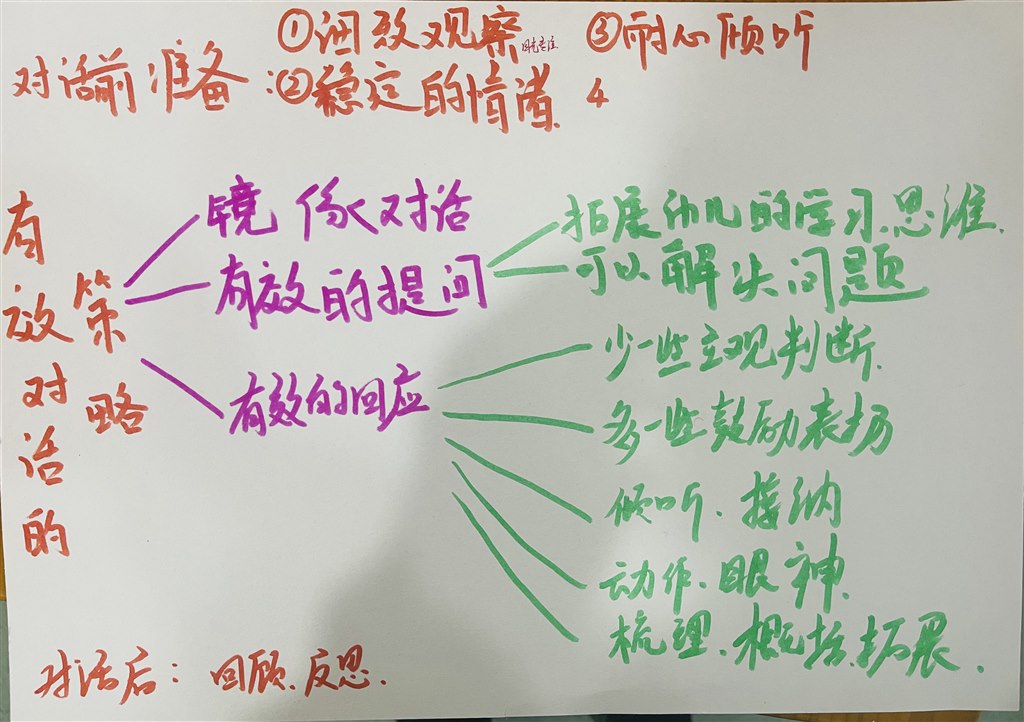 对话前准备:①细致观察 ③耐心倾听
②稳定的情绪 4
有效对话的
策略
镜像对话
有效的提问
拓展幼儿的学习思维.
可以解决问题
有效的回应
少一些主观判断.
多一些鼓励表扬
倾听、接纳
动作、眼神.
梳理、概括、拓展.
对话后: 回顾、反思.